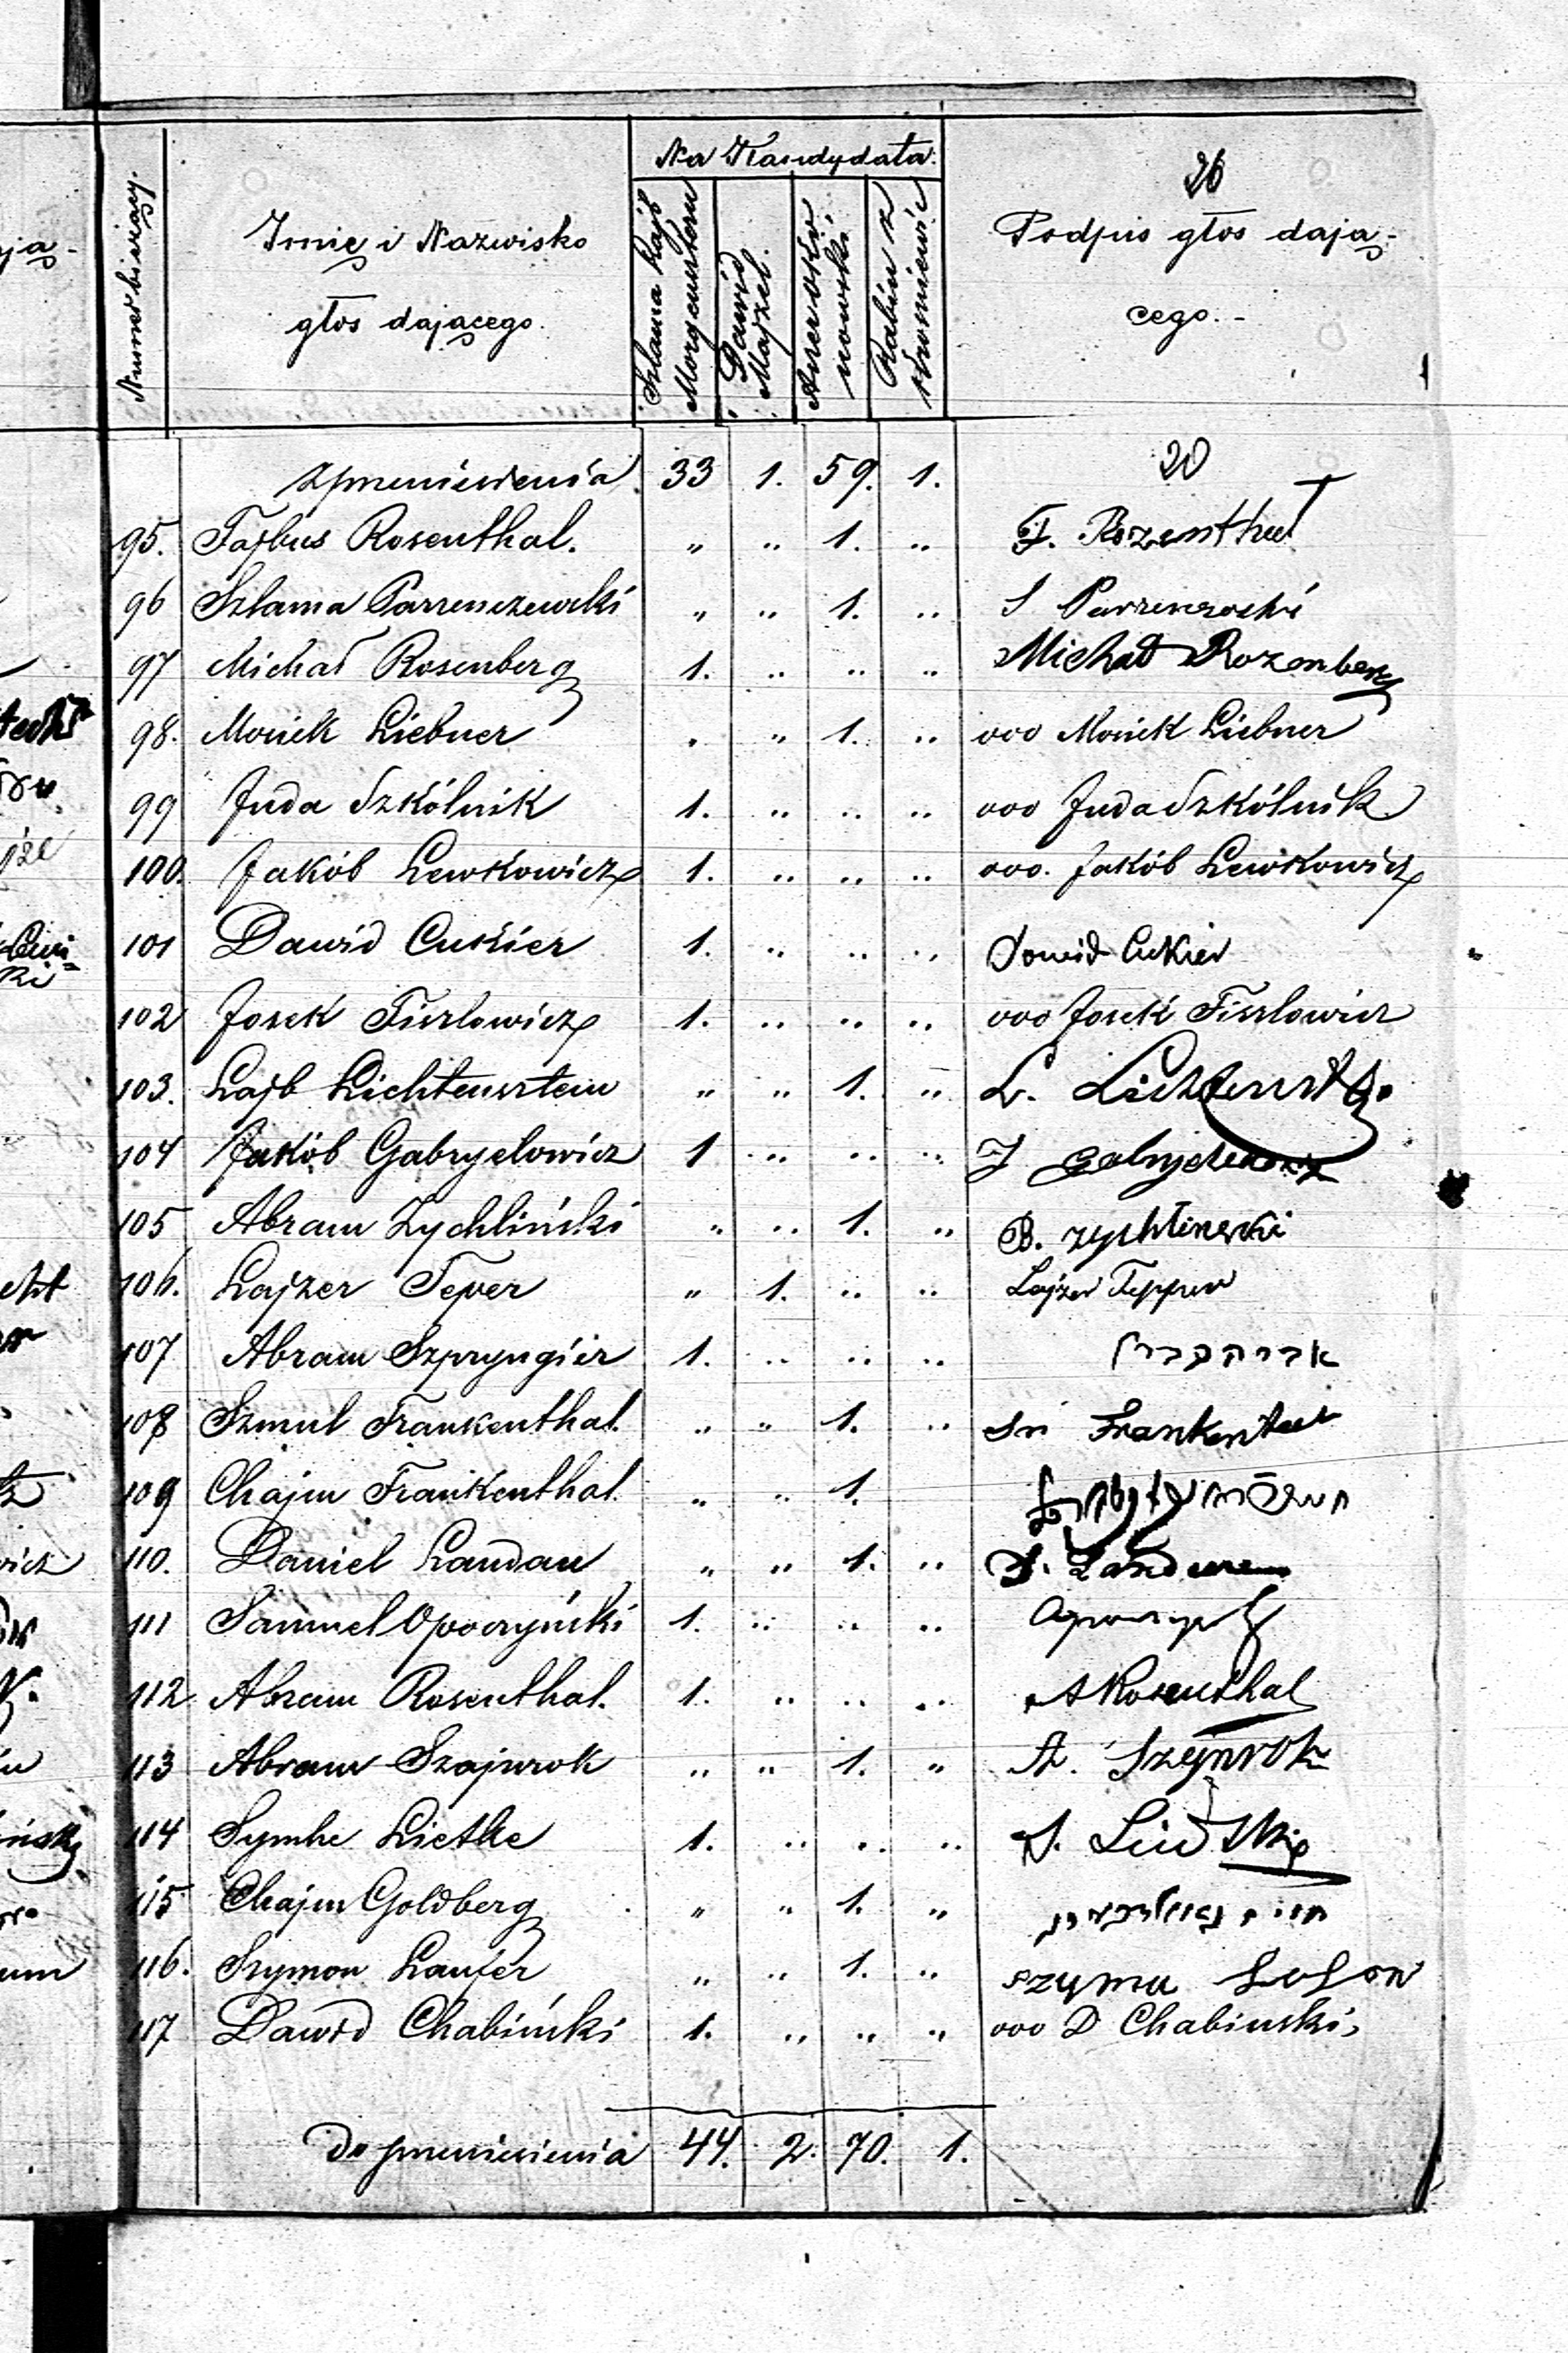 Na Kandydata
26
Numer bieżący.
Imię i Nazwisko
głos dającego.
Szlama Lajb Morgensztern
Dawid Majzel.
Rabin z
Podpis głos dają-
cego. -
z przeniesienia 33 1. 59. 1. 20
95. Fajbus Rosenthal. " " 1. " F. Rozenthal
96 Szlama Parzenczewski " " 1. " S Parzenczeski
97 Michał Rosenberg 1. " " " Michał Rozenberg
98. Moniek Liebner " " 1. " ooo Moniek Liebner
99 Juda Szkólnik 1. " " " ooo Juda Szkólnik
100. Jakób Lewkowicz 1. " " " ooo. Jakób Lewkowicz
101 Dawid Cukier 1. " " " Dawid Cukier
102 Josek Fiszlowicz 1. " " " ooo Josek Fiszlowicz
103. Lajb Lichtensztein " " 1. " L.
104 Jakób Gabryelowicz 1 " " " J
105 Abram Zychliński " " 1. " B. zychlinski
106. Lajzer Teper " 1. " " Lajzer Tepper
107 Abram Szpryngier 1. " " "
108 Szmul Frankenthal. " " 1. " Frankental
109 Chajm Frankenthal. " " 1.
110. Daniel Landau " " 1. " D. Landau
111 Samuel Opoczyński 1. " " "
112 Abram Rosenthal. 1. " " " A Rosenthal
113 Abram Szajnrok " " 1. " A. Szejnrok
114 Symhe Lietke 1. " " " S.
115 Chajm Goldberg " " 1. "
116. Szymon Laufer " " 1. " szymu
117 Dawid Chabiński 1. " " " ooo D Chabinski
do przeniesienia 44. 2. 70. 1.